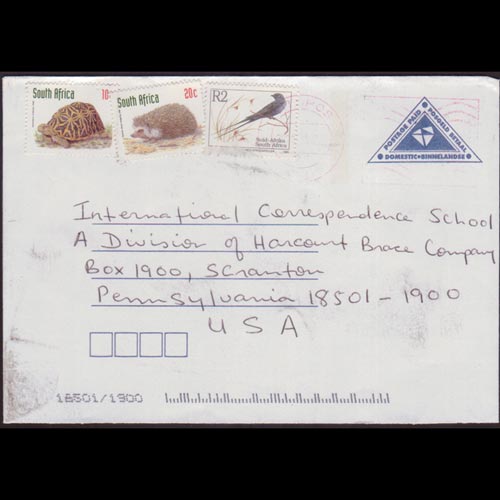 South Africa 10c
South Africa 20c
R2
Suid-Afrika
South Africa
POSTAGE PAID
POSGELD BETAAL
DOMESTIC • BINNELANDSE
International Correspondence School
A Division of Harcourt Brace Company
Box 1900, Scranton
Pennsylvania 18501-1900
USA
18501/1900